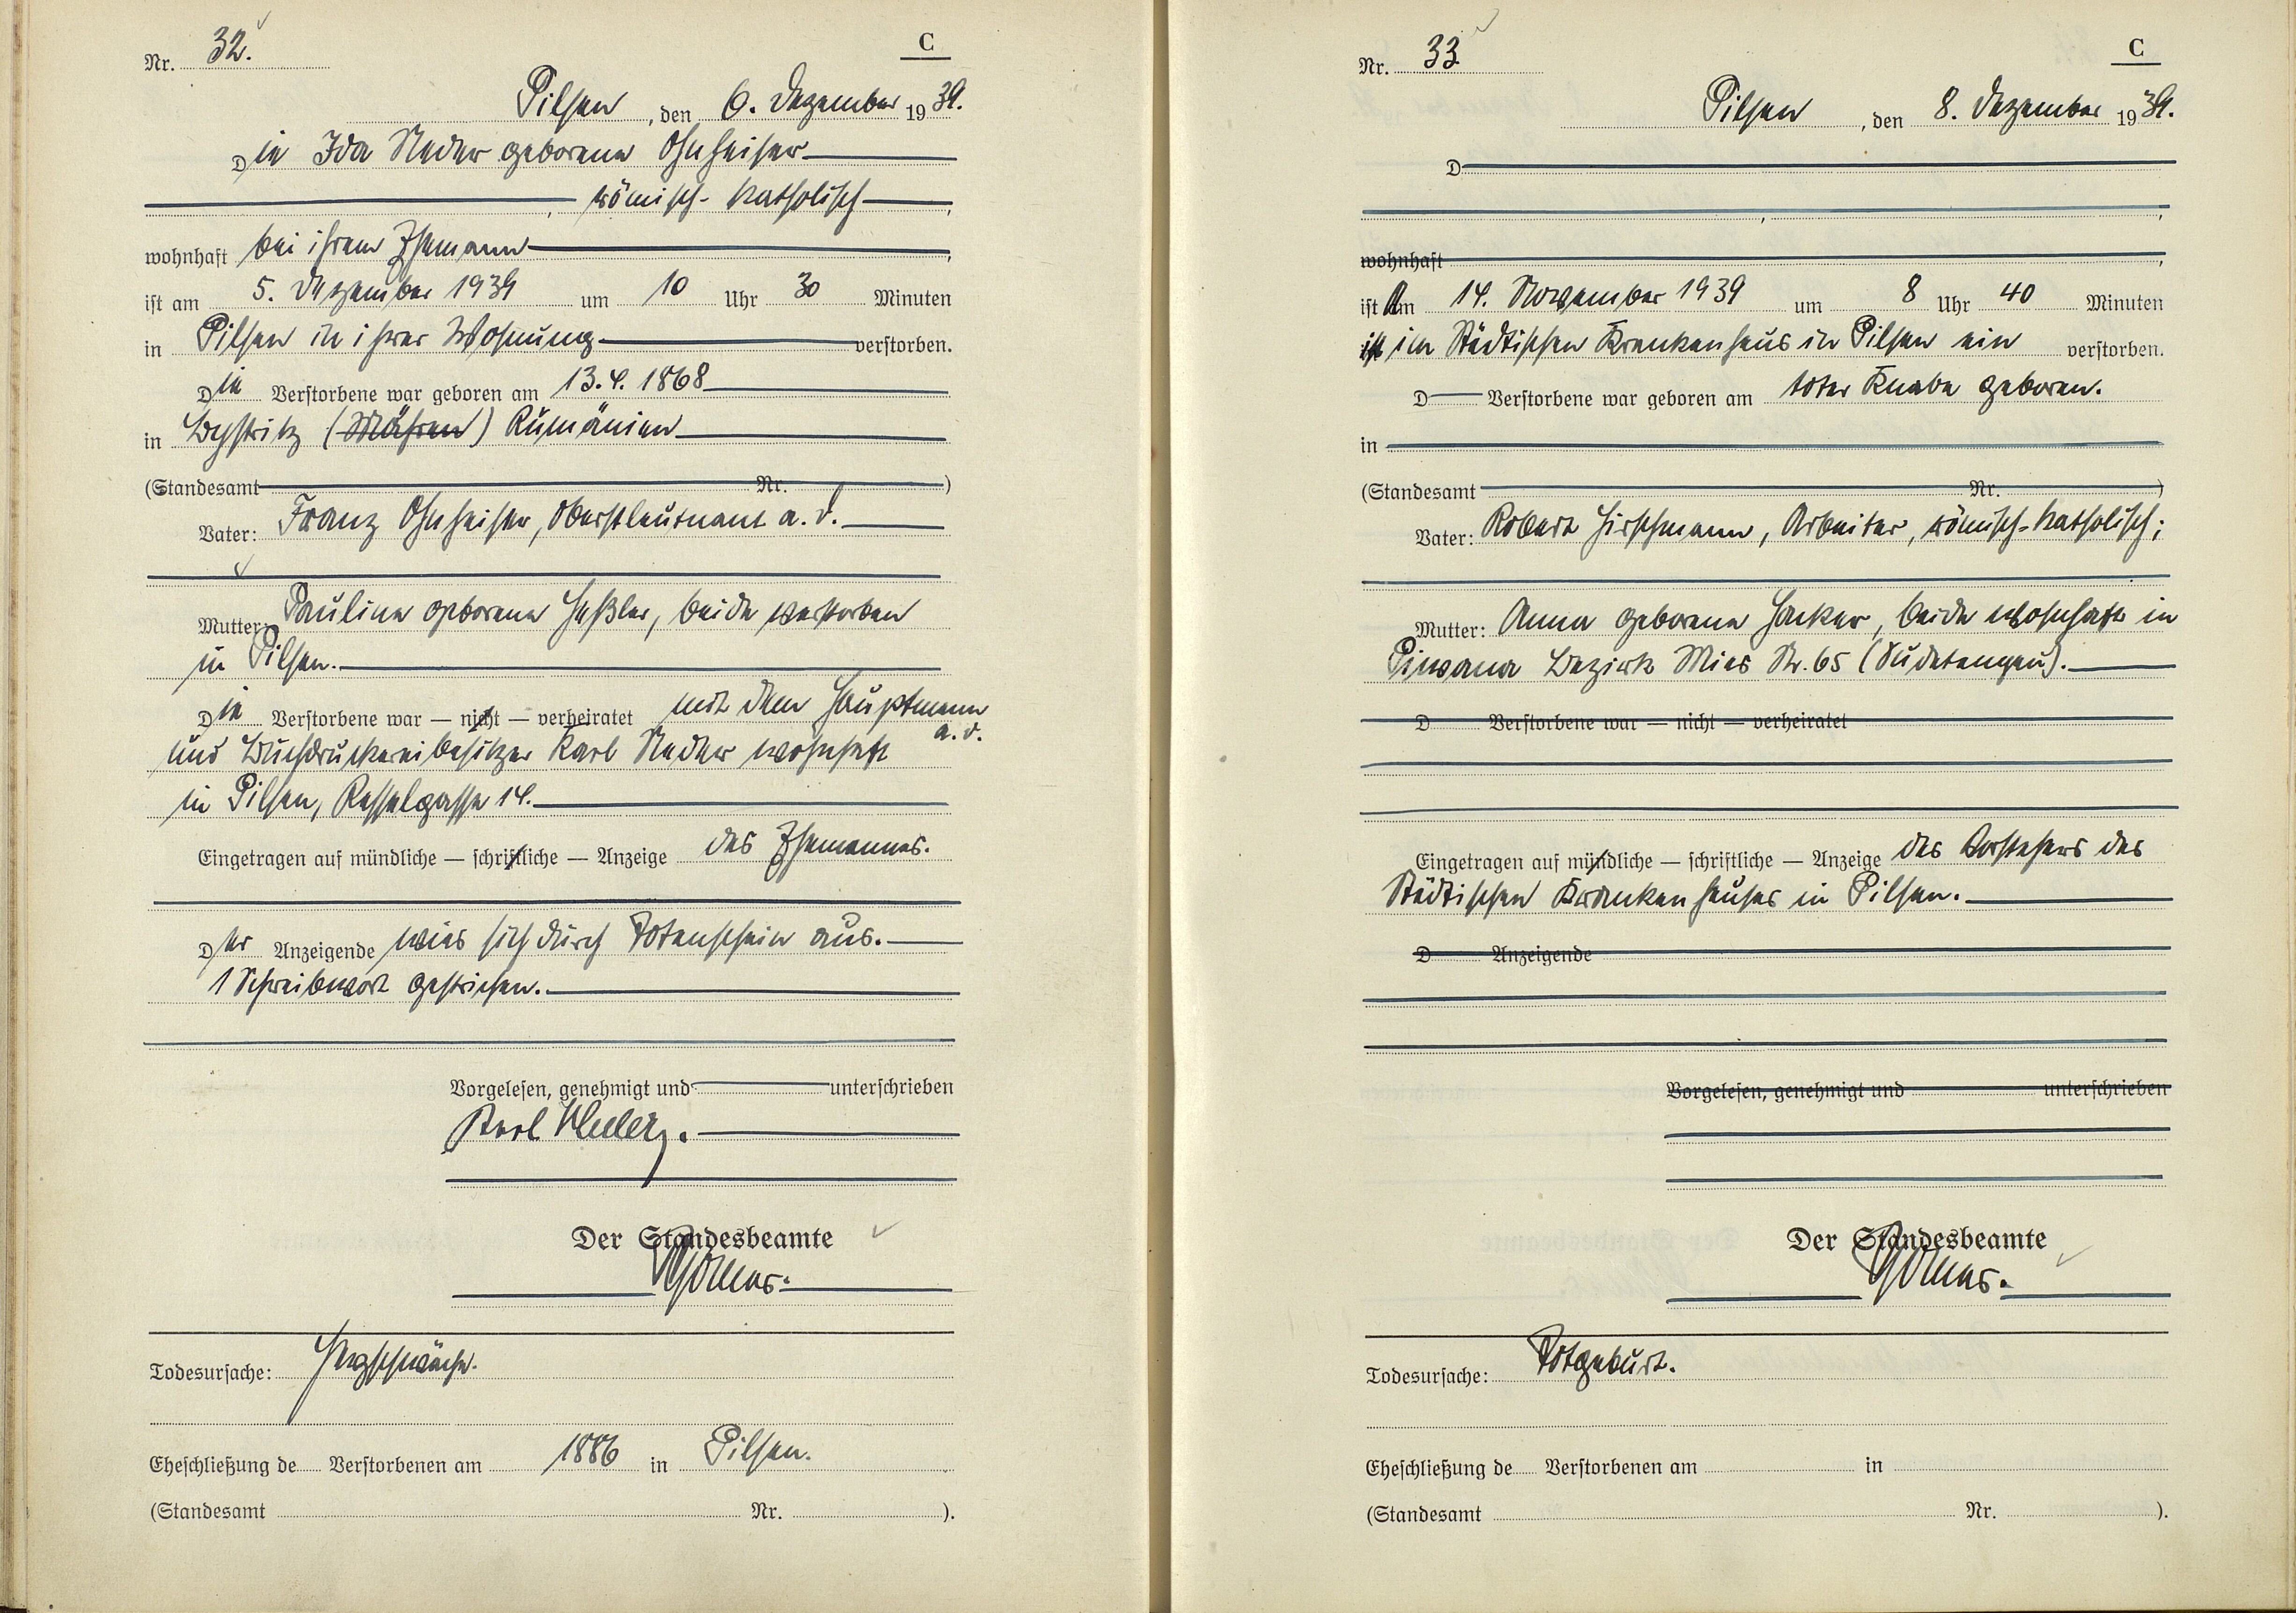 Nr. 32.
C
Pilsen, den 6. Dezember 1939.
Die Ida Neder geborene Ohnheiser
, römisch-katholisch,
wohnhaft bei ihrem Ehemann,
ist am 5. Dezember 1939 um 10 Uhr 30 Minuten
in Pilsen in ihrer Wohnung verstorben.
Die Verstorbene war geboren am 13.4.1868
in Bystritz (Mähren) Rumänien
(Standesamt Nr. )
Vater: Franz Ohnheiser, Oberstleutnant a. D.
Mutter: Pauline geborene Heßler, beide verstorben
in Pilsen.
Die Verstorbene war — nicht — verheiratet mit dem Hauptmann
a. D.
und Buchdruckereibesitzer Karl Neder wohnhaft
in Pilsen, Resselgasse 14.
Eingetragen auf mündliche — schriftliche — Anzeige des Ehemannes.
Der Anzeigende wies sich durch Totenschein aus.
1 Schreibwort gestrichen.
Vorgelesen, genehmigt und unterschrieben
Karl Neder.
Der Standesbeamte
Todesursache: Herzschwäche.
Eheschließung de Verstorbenen am 1886 in Pilsen.
(Standesamt Nr. ).
Nr. 33
C
Pilsen, den 8. Dezember 1939.
D
, ,
wohnhaft ,
ist Am 14. November 1939 um 8 Uhr 40 Minuten
ist im Städtischen Krankenhaus in Pilsen ein verstorben.
D Verstorbene war geboren am toter Knabe geboren.
in
(Standesamt Nr. )
Vater: Robert Hirschmann, Arbeiter, römisch-katholisch;
Mutter: Anna geborene Hacker, beide wohnhaft in
Piwana Bezirk Mies Nr. 65 (Sudetengau).
D Verstorbene war — nicht — verheiratet
Eingetragen auf mündliche — schriftliche — Anzeige des Vorstehers des
Städtischen Krankenhauses in Pilsen.
D Anzeigende
Vorgelesen, genehmigt und unterschrieben
Der Standesbeamte
Todesursache: Totgeburt.
Eheschließung de Verstorbenen am in
(Standesamt Nr. ).